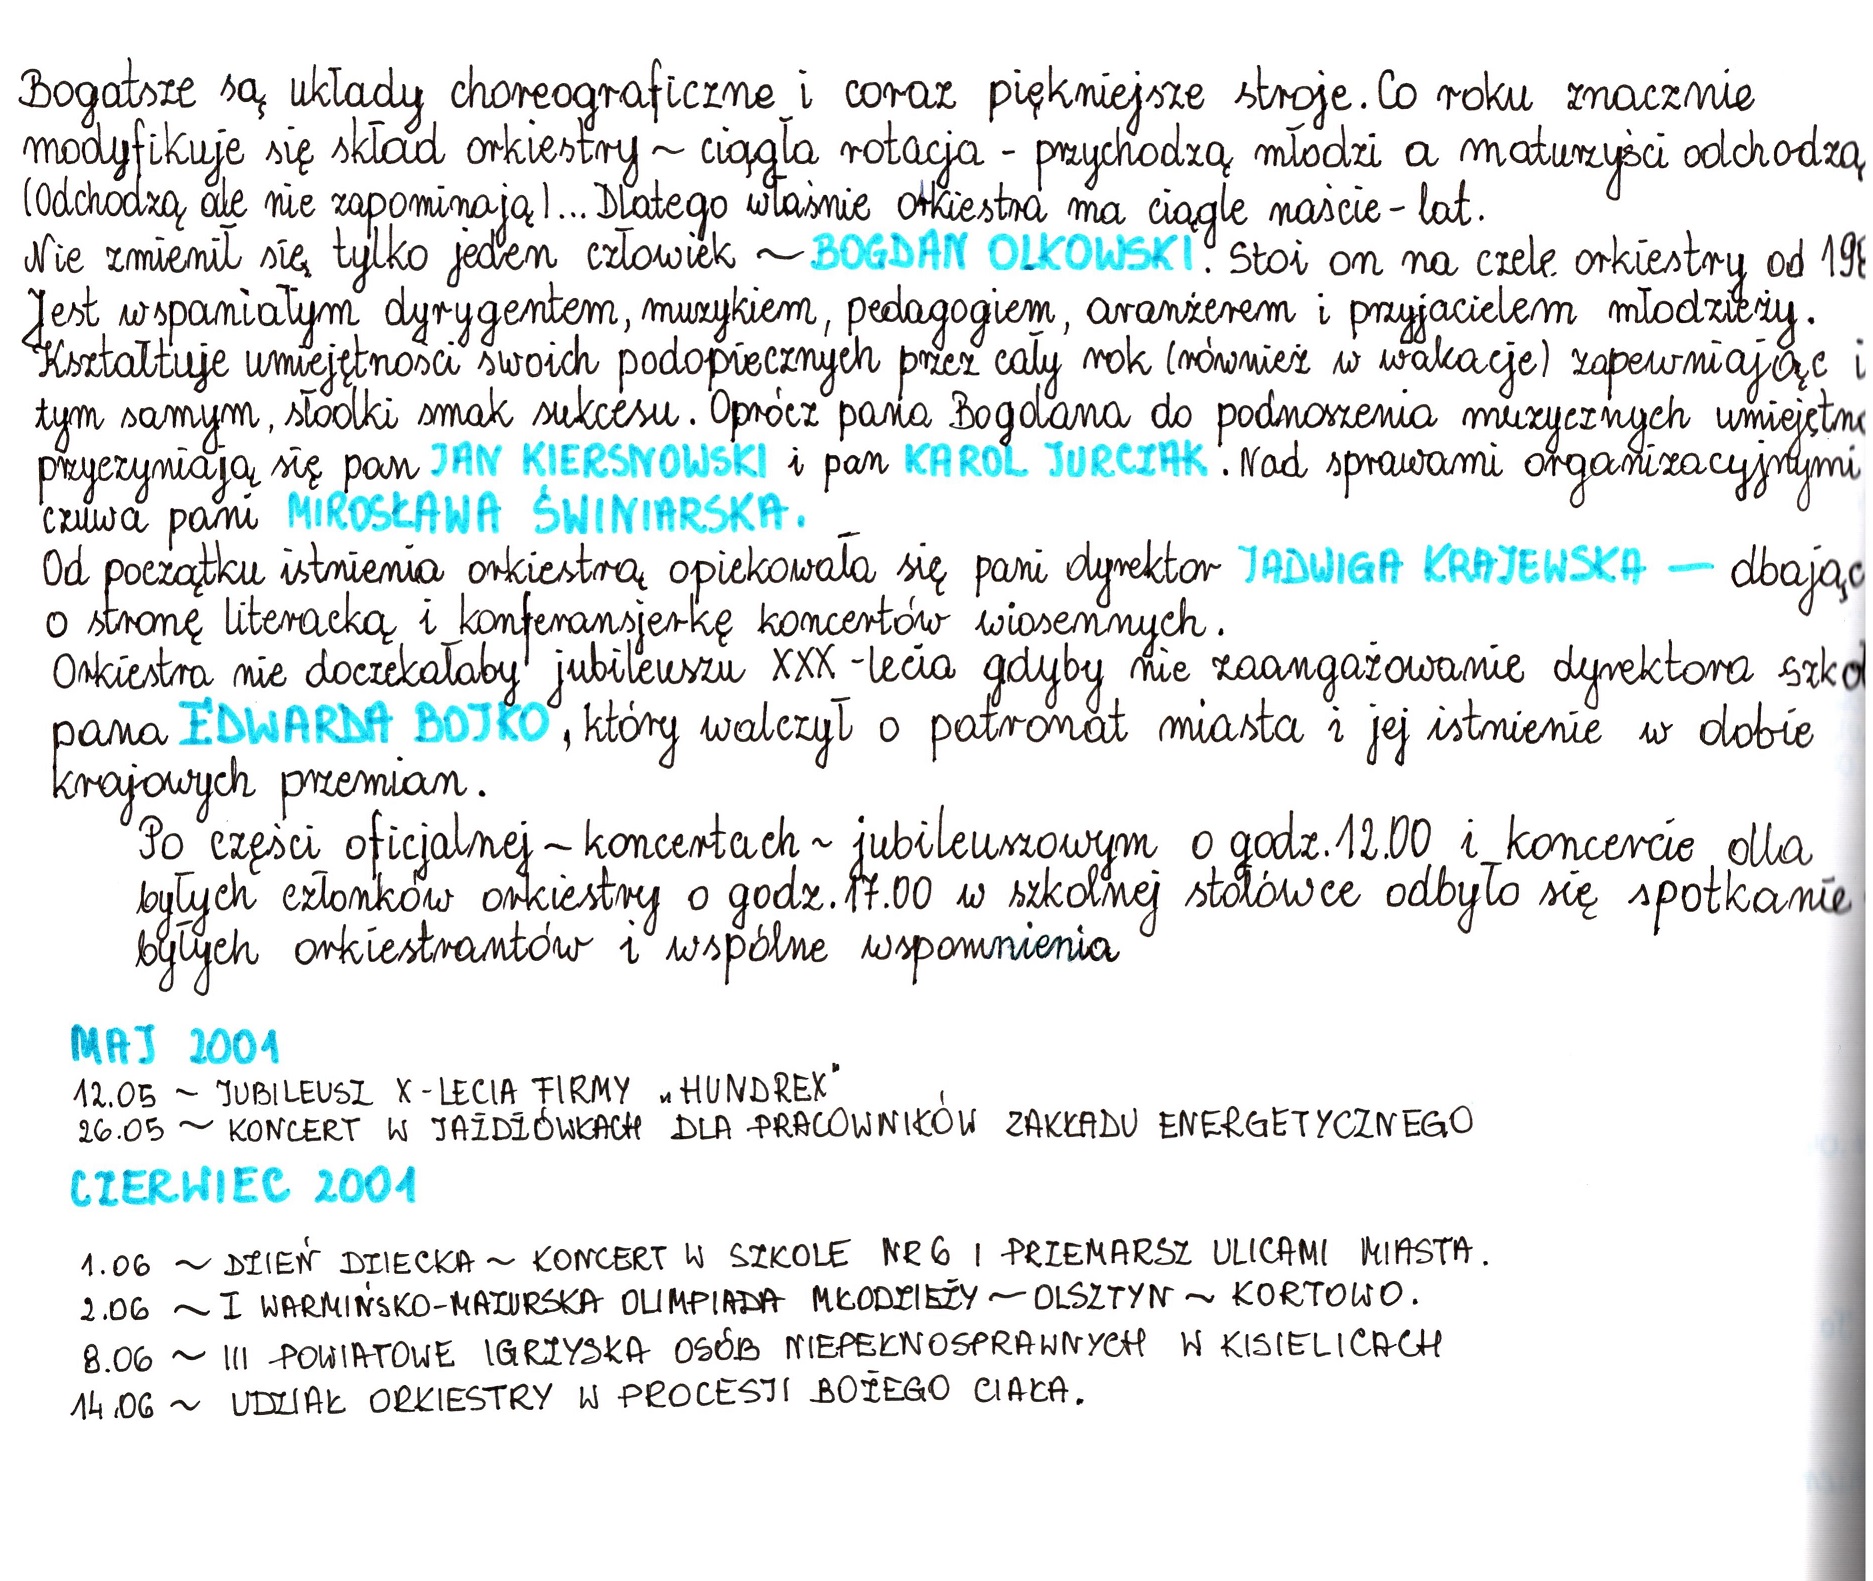 Bogatsze są układy choreograficzne i coraz piękniejsze stroje. Co roku znacznie
modyfikuje się skład orkiestry ~ ciągła rotacja - przychodzą młodzi a maturzyści odchodzą
(Odchodzą ale nie zapominają)... Dlatego właśnie orkiestra ma ciągle naście - lat.
Nie zmienił się tylko jeden człowiek ~ BOGDAN OLKOWSKI. Stoi on na czele orkiestry od
Jest wspaniałym dyrygentem, muzykiem, pedagogiem, aranżerem i przyjacielem młodzieży.
Kształtuje umiejętności swoich podopiecznych przez cały rok (również w wakacje) zapewniając
tym samym, słodki smak sukcesu. Oprócz pana Bogdana do podnoszenia muzycznych umiejętno
przyczyniają się pan JAN KIERSNOWSKI i pan KAROL JURCZAK. Nad sprawami organizacyjnymi
czuwa pani MIROSŁAWA ŚWINIARSKA.
Od początku istnienia orkiestrą opiekowała się pani dyrektor JADWIGA KRAJEWSKA — dbając
o stronę literacką i konferansjerkę koncertów wiosennych.
Orkiestra nie doczekałaby jubileuszu XXX -lecia gdyby nie zaangażowanie dyrektora szko
pana EDWARDA BOJKO, który walczył o patronat miasta i jej istnienie w dobie
krajowych przemian.
Po części oficjalnej ~ koncertach ~ jubileuszowym o godz. 12.00 i koncercie dla
byłych członków orkiestry o godz. 17.00 w szkolnej stołówce odbyło się spotkanie
byłych orkiestrantów i wspólne wspomnienia
MAJ 2001
12.05 ~ JUBILEUSZ X-LECIA FIRMY „HUNDREX"
26.05 ~ KONCERT W JAŹDŻÓWKACH DLA PRACOWNIKÓW ZAKŁADU ENERGETYCZNEGO
CZERWIEC 2001
1.06 ~ DZIEŃ DZIECKA ~ KONCERT W SZKOLE NR 6 I PRZEMARSZ ULICAMI MIASTA.
2.06 ~ I WARMIŃSKO-MAZURSKA OLIMPIADA MŁODZIEŻY ~ OLSZTYN ~ KORTOWO.
8.06 ~ III POWIATOWE IGRZYSKA OSÓB NIEPEŁNOSPRAWNYCH W KISIELICACH
14.06 ~ UDZIAŁ ORKIESTRY W PROCESJI BOŻEGO CIAŁA.